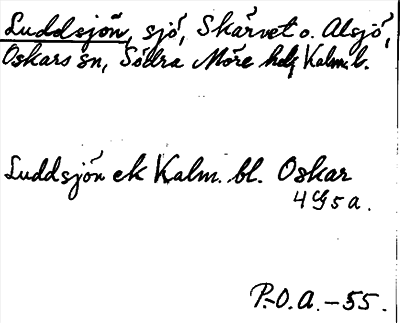 Luddsjön, sjö, Skärvet o. Alsjö,
Oskars sn, Södra Möre hd, Kalm. l.
Luddsjön ek Kalm. bl. Oskar
4G5a.
P.-O.A. - 55.